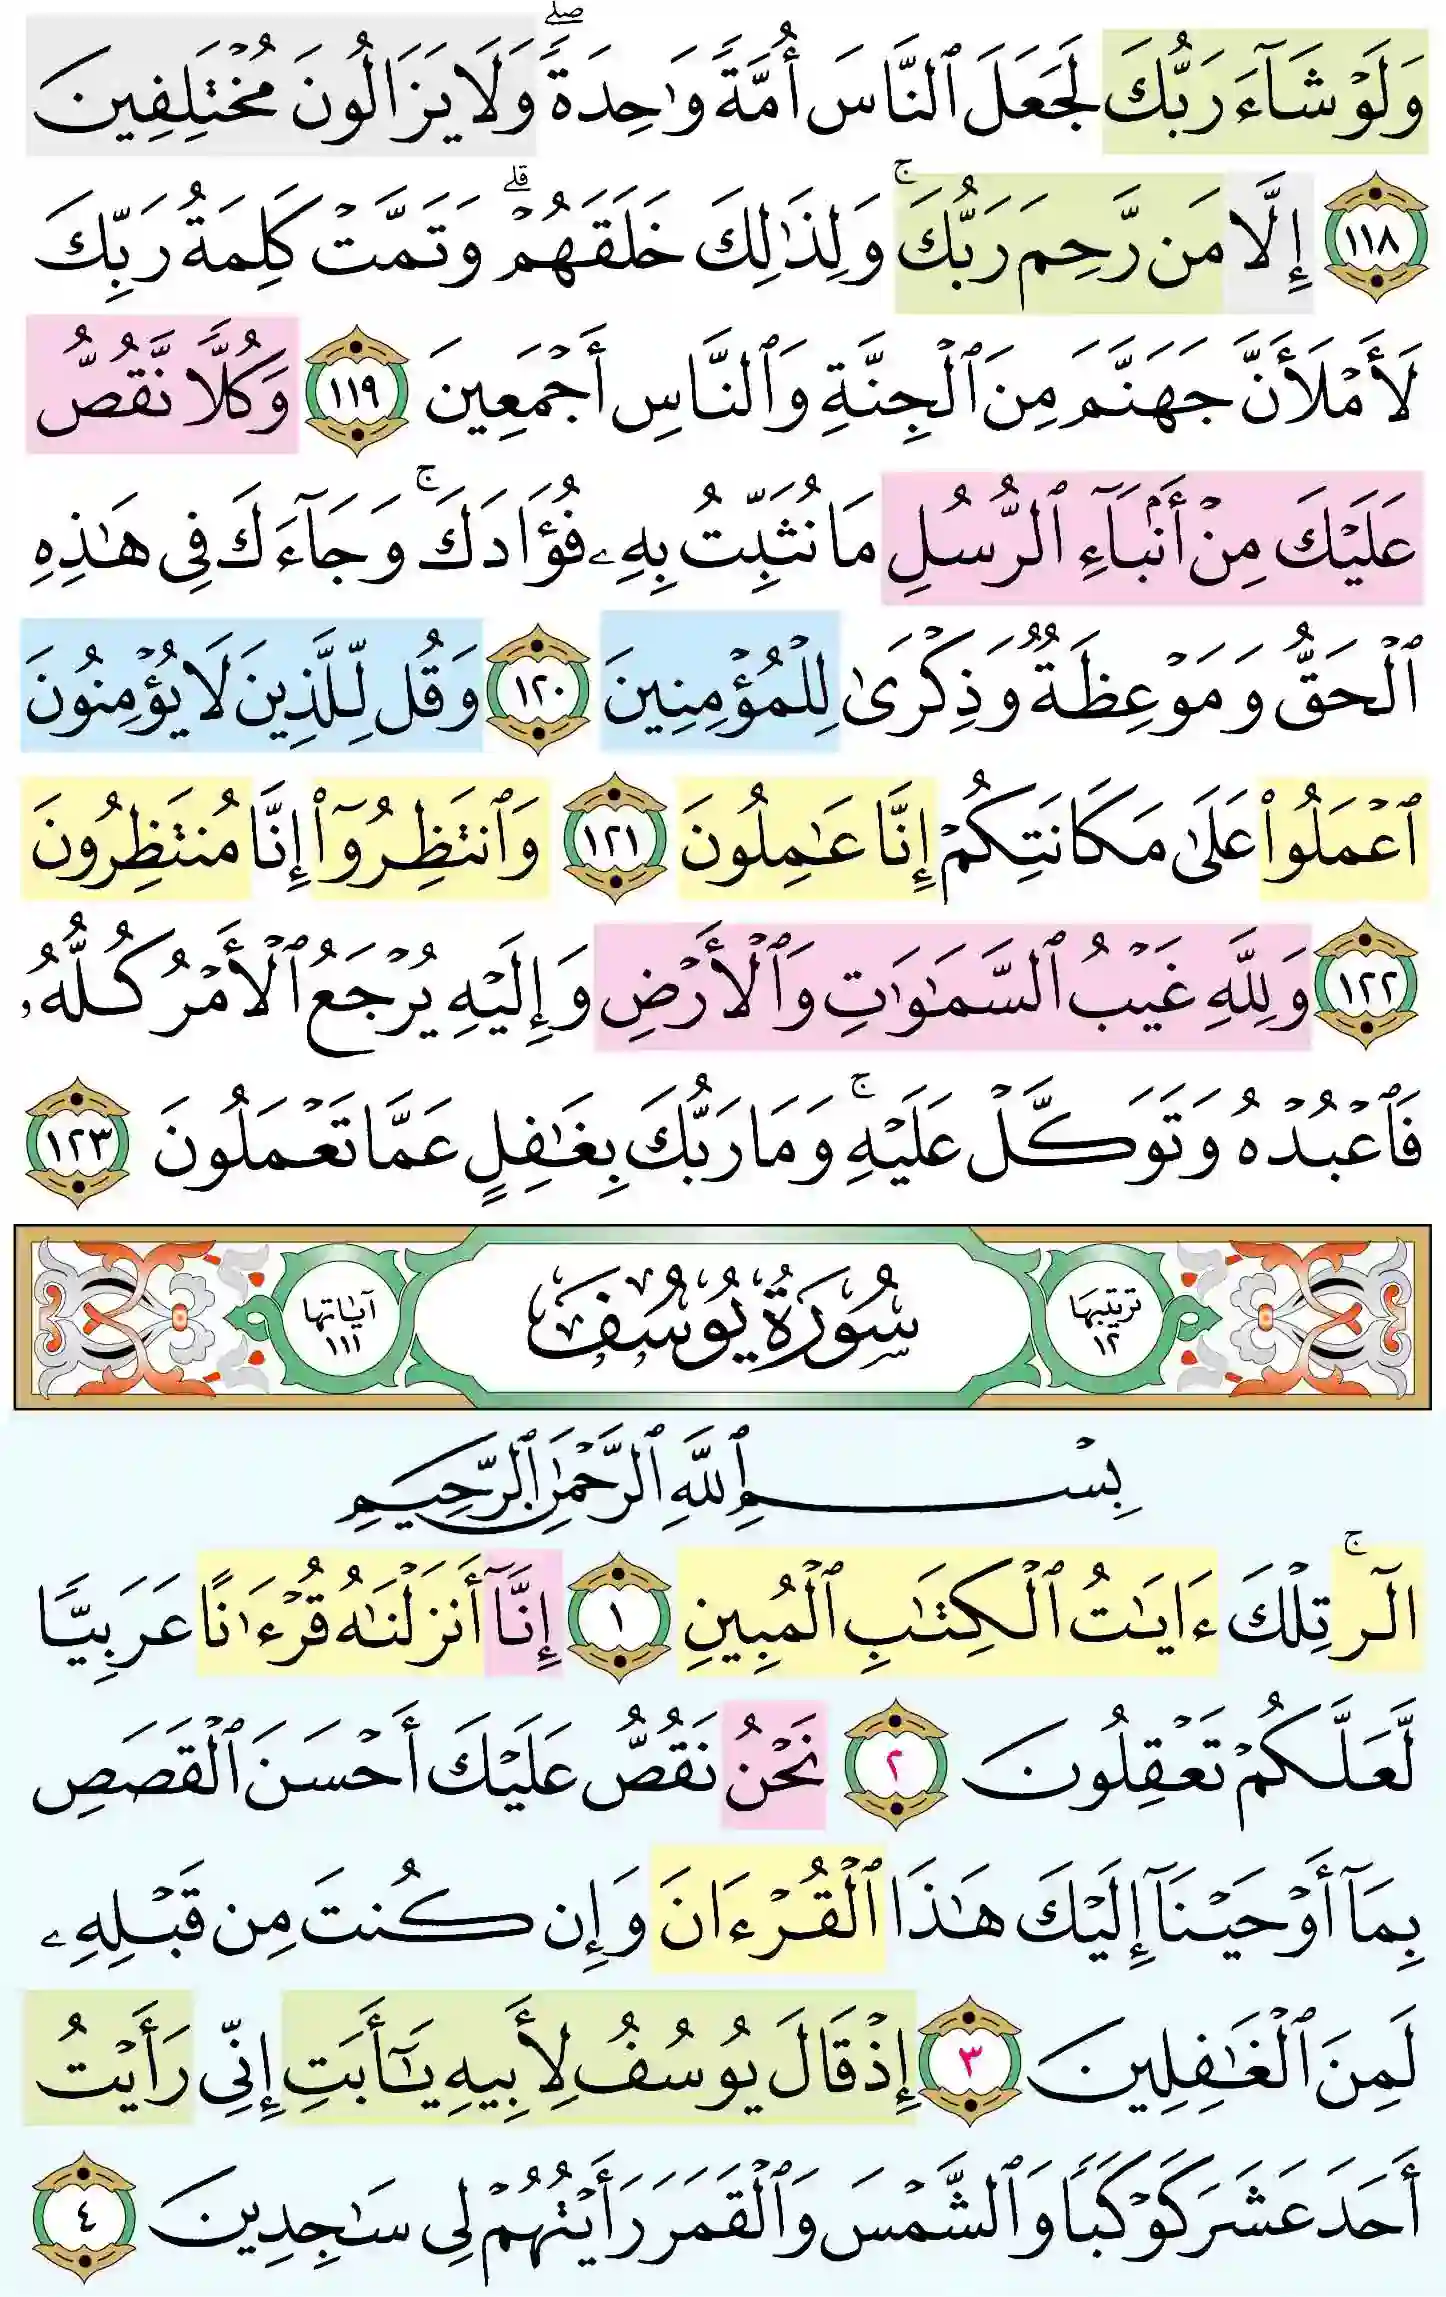 وَلَوْ شَآءَ رَبُّكَ لَجَعَلَ ٱلنَّاسَ أُمَّةً وَٰحِدَةًۖ وَلَا يَزَالُونَ مُخْتَلِفِينَ
١١٨ إِلَّا مَن رَّحِمَ رَبُّكَۚ وَلِذَٰلِكَ خَلَقَهُمْۗ وَتَمَّتْ كَلِمَةُ رَبِّكَ
لَأَمْلَأَنَّ جَهَنَّمَ مِنَ ٱلْجِنَّةِ وَٱلنَّاسِ أَجْمَعِينَ ١١٩ وَكُلًّا نَّقُصُّ
عَلَيْكَ مِنْ أَنۢبَآءِ ٱلرُّسُلِ مَا نُثَبِّتُ بِهِۦ فُؤَادَكَۚ وَجَآءَكَ فِى هَٰذِهِ
ٱلْحَقُّ وَمَوْعِظَةٌ وَذِكْرَىٰ لِلْمُؤْمِنِينَ ١٢٠ وَقُل لِّلَّذِينَ لَا يُؤْمِنُونَ
ٱعْمَلُوا۟ عَلَىٰ مَكَانَتِكُمْ إِنَّا عَٰمِلُونَ ١٢١ وَٱنتَظِرُوٓا۟ إِنَّا مُنتَظِرُونَ
١٢٢ وَلِلَّهِ غَيْبُ ٱلسَّمَٰوَٰتِ وَٱلْأَرْضِ وَإِلَيْهِ يُرْجَعُ ٱلْأَمْرُ كُلُّهُۥ
فَٱعْبُدْهُ وَتَوَكَّلْ عَلَيْهِۚ وَمَا رَبُّكَ بِغَٰفِلٍ عَمَّا تَعْمَلُونَ ١٢٣
ترتيبها ١٢ سُورَةُ يُوسُفَ آياتها ١١١
بِسْمِ ٱللَّهِ ٱلرَّحْمَٰنِ ٱلرَّحِيمِ
الٓرۚ تِلْكَ ءَايَٰتُ ٱلْكِتَٰبِ ٱلْمُبِينِ ١ إِنَّآ أَنزَلْنَٰهُ قُرْءَٰنًا عَرَبِيًّا
لَّعَلَّكُمْ تَعْقِلُونَ ٢ نَحْنُ نَقُصُّ عَلَيْكَ أَحْسَنَ ٱلْقَصَصِ
بِمَآ أَوْحَيْنَآ إِلَيْكَ هَٰذَا ٱلْقُرْءَانَ وَإِن كُنتَ مِن قَبْلِهِۦ
لَمِنَ ٱلْغَٰفِلِينَ ٣ إِذْ قَالَ يُوسُفُ لِأَبِيهِ يَٰٓأَبَتِ إِنِّى رَأَيْتُ
أَحَدَ عَشَرَ كَوْكَبًا وَٱلشَّمْسَ وَٱلْقَمَرَ رَأَيْتُهُمْ لِى سَٰجِدِينَ ٤